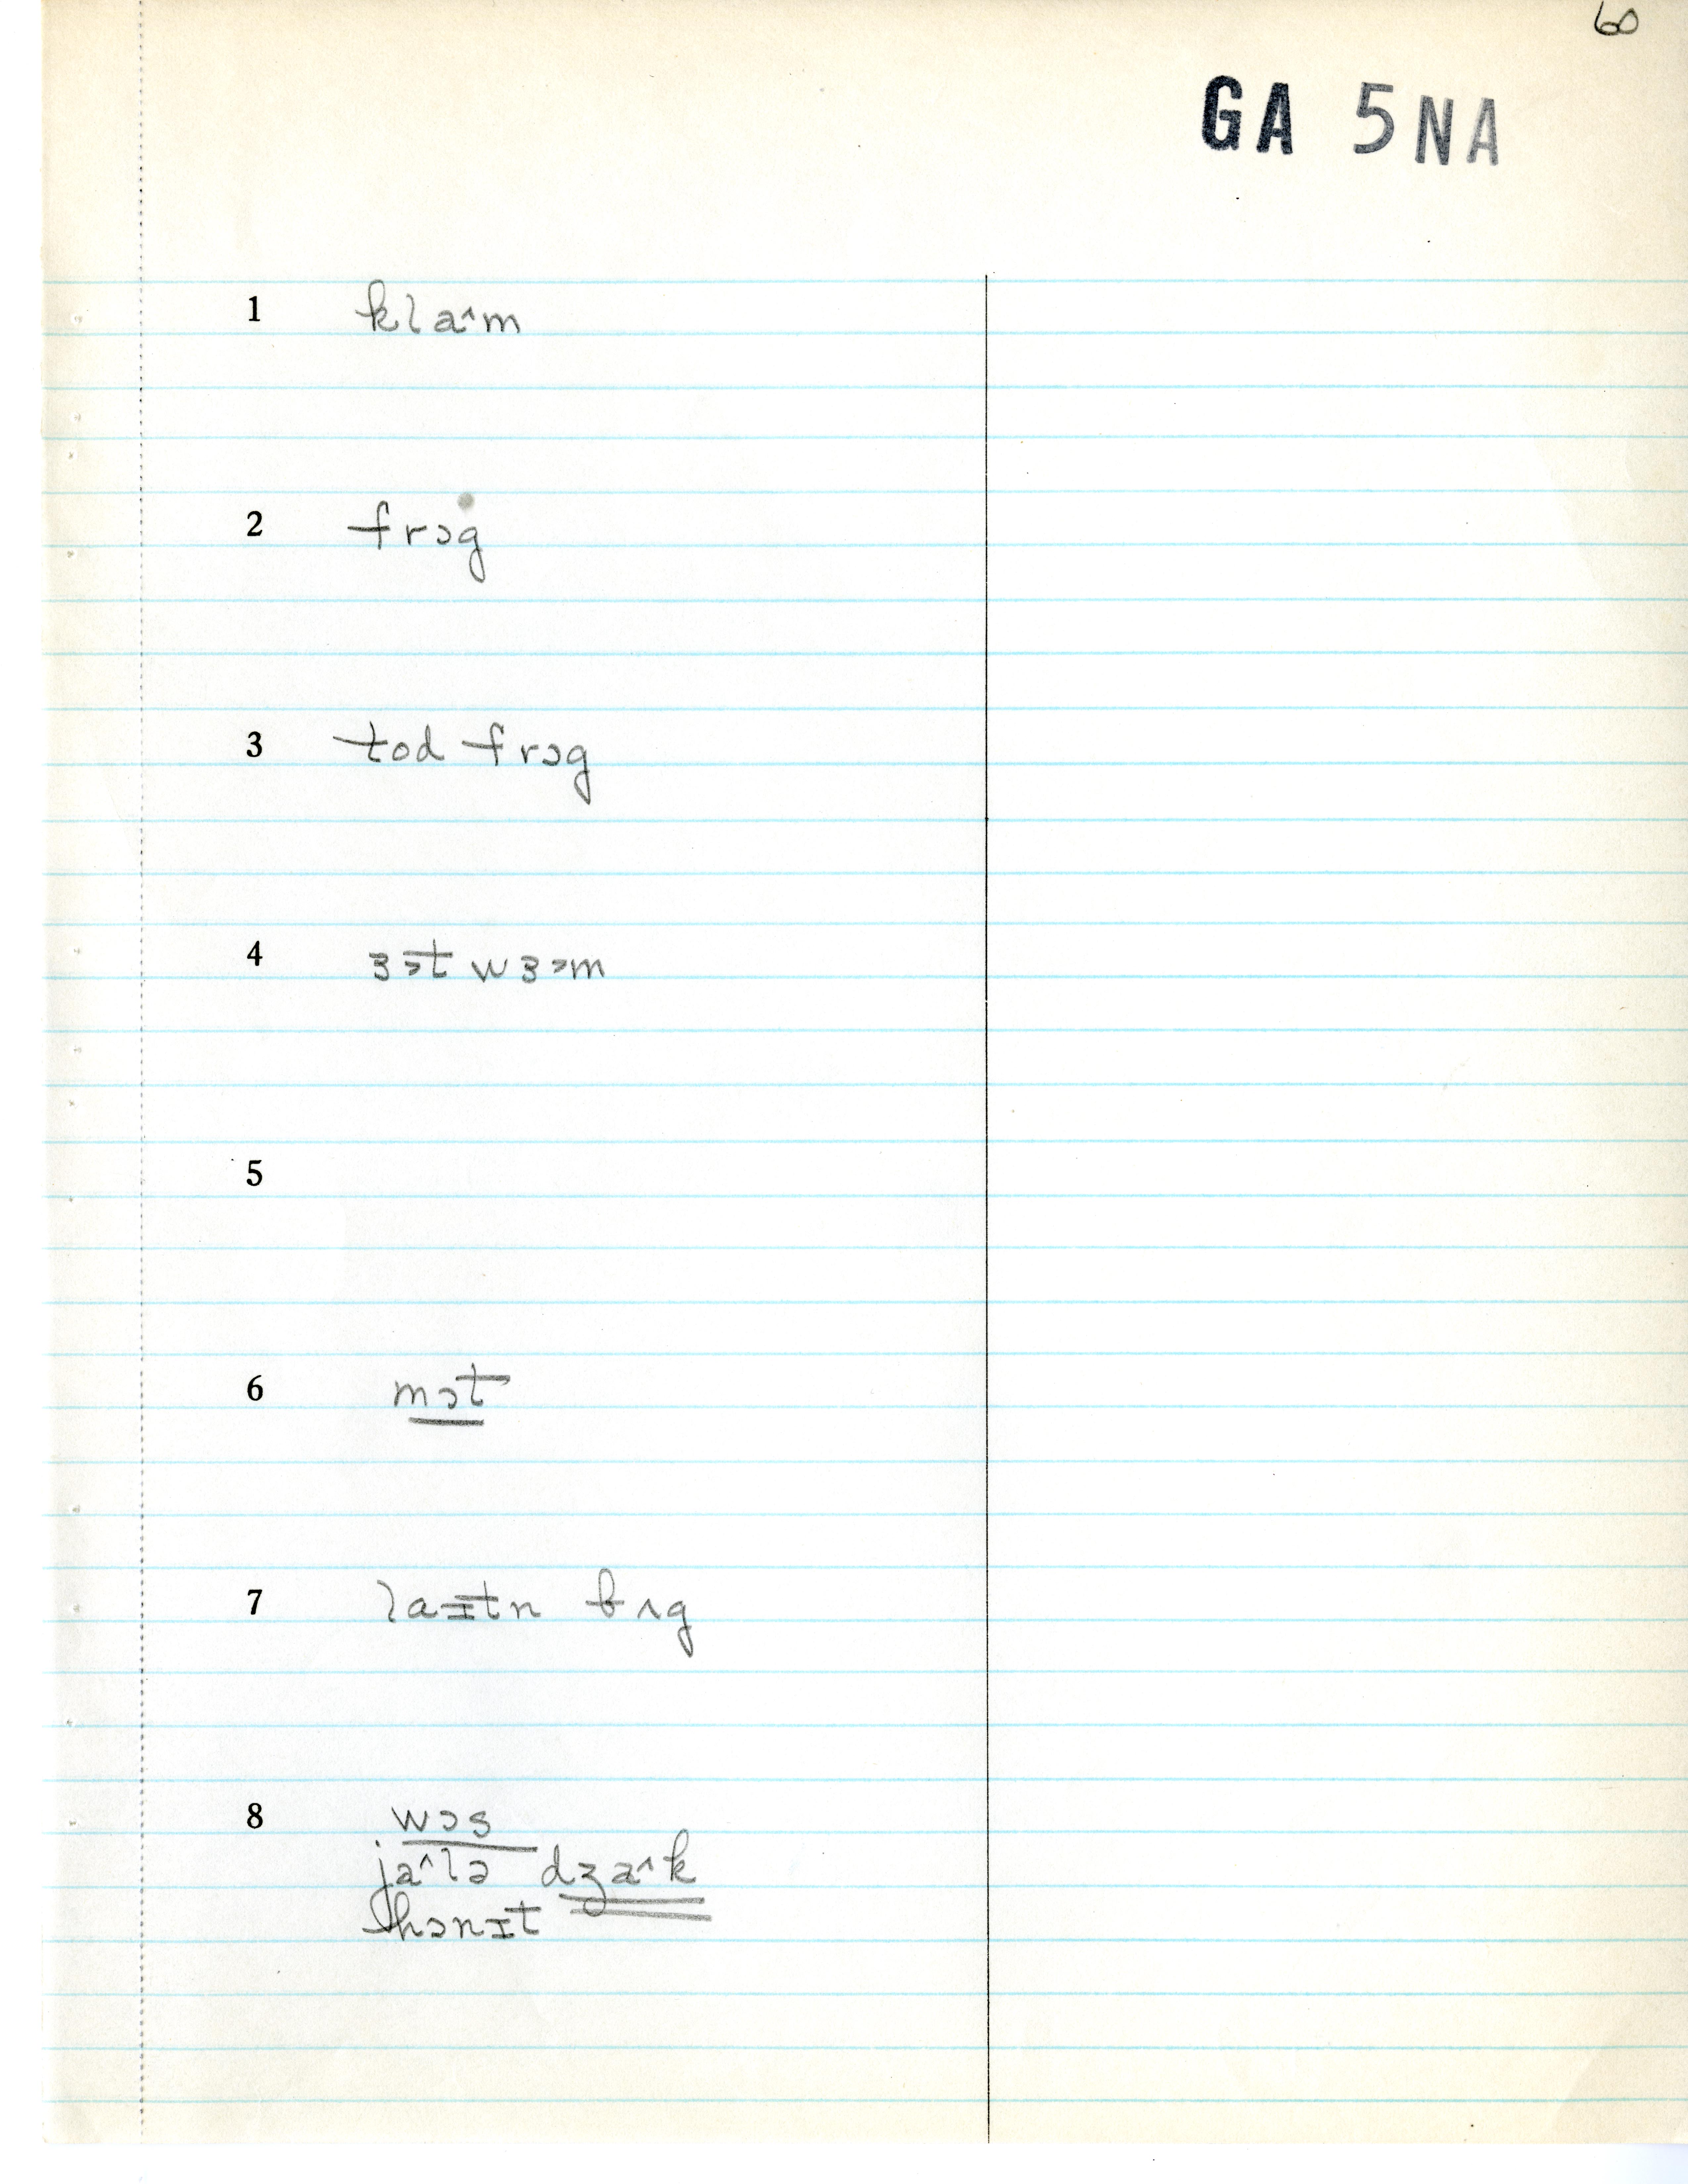 60
GA 5NA
1 kla^m
2 frɔg
3 tod frɔg
4 ɜ˞t wɜ˞m
5
6 mɔt
7 laɪtn bʌg
8 wɔs
ja^lə dʒa^k
hɔnɪt